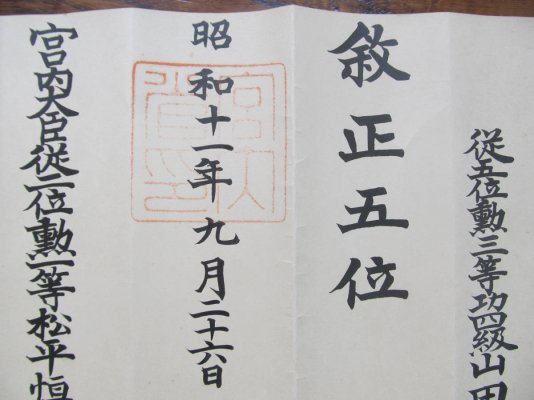 従五位勲三等功四級山田
敘正五位
昭和十一年九月二十六日
宮内大臣従二位勲一等松平恒
宮内省印